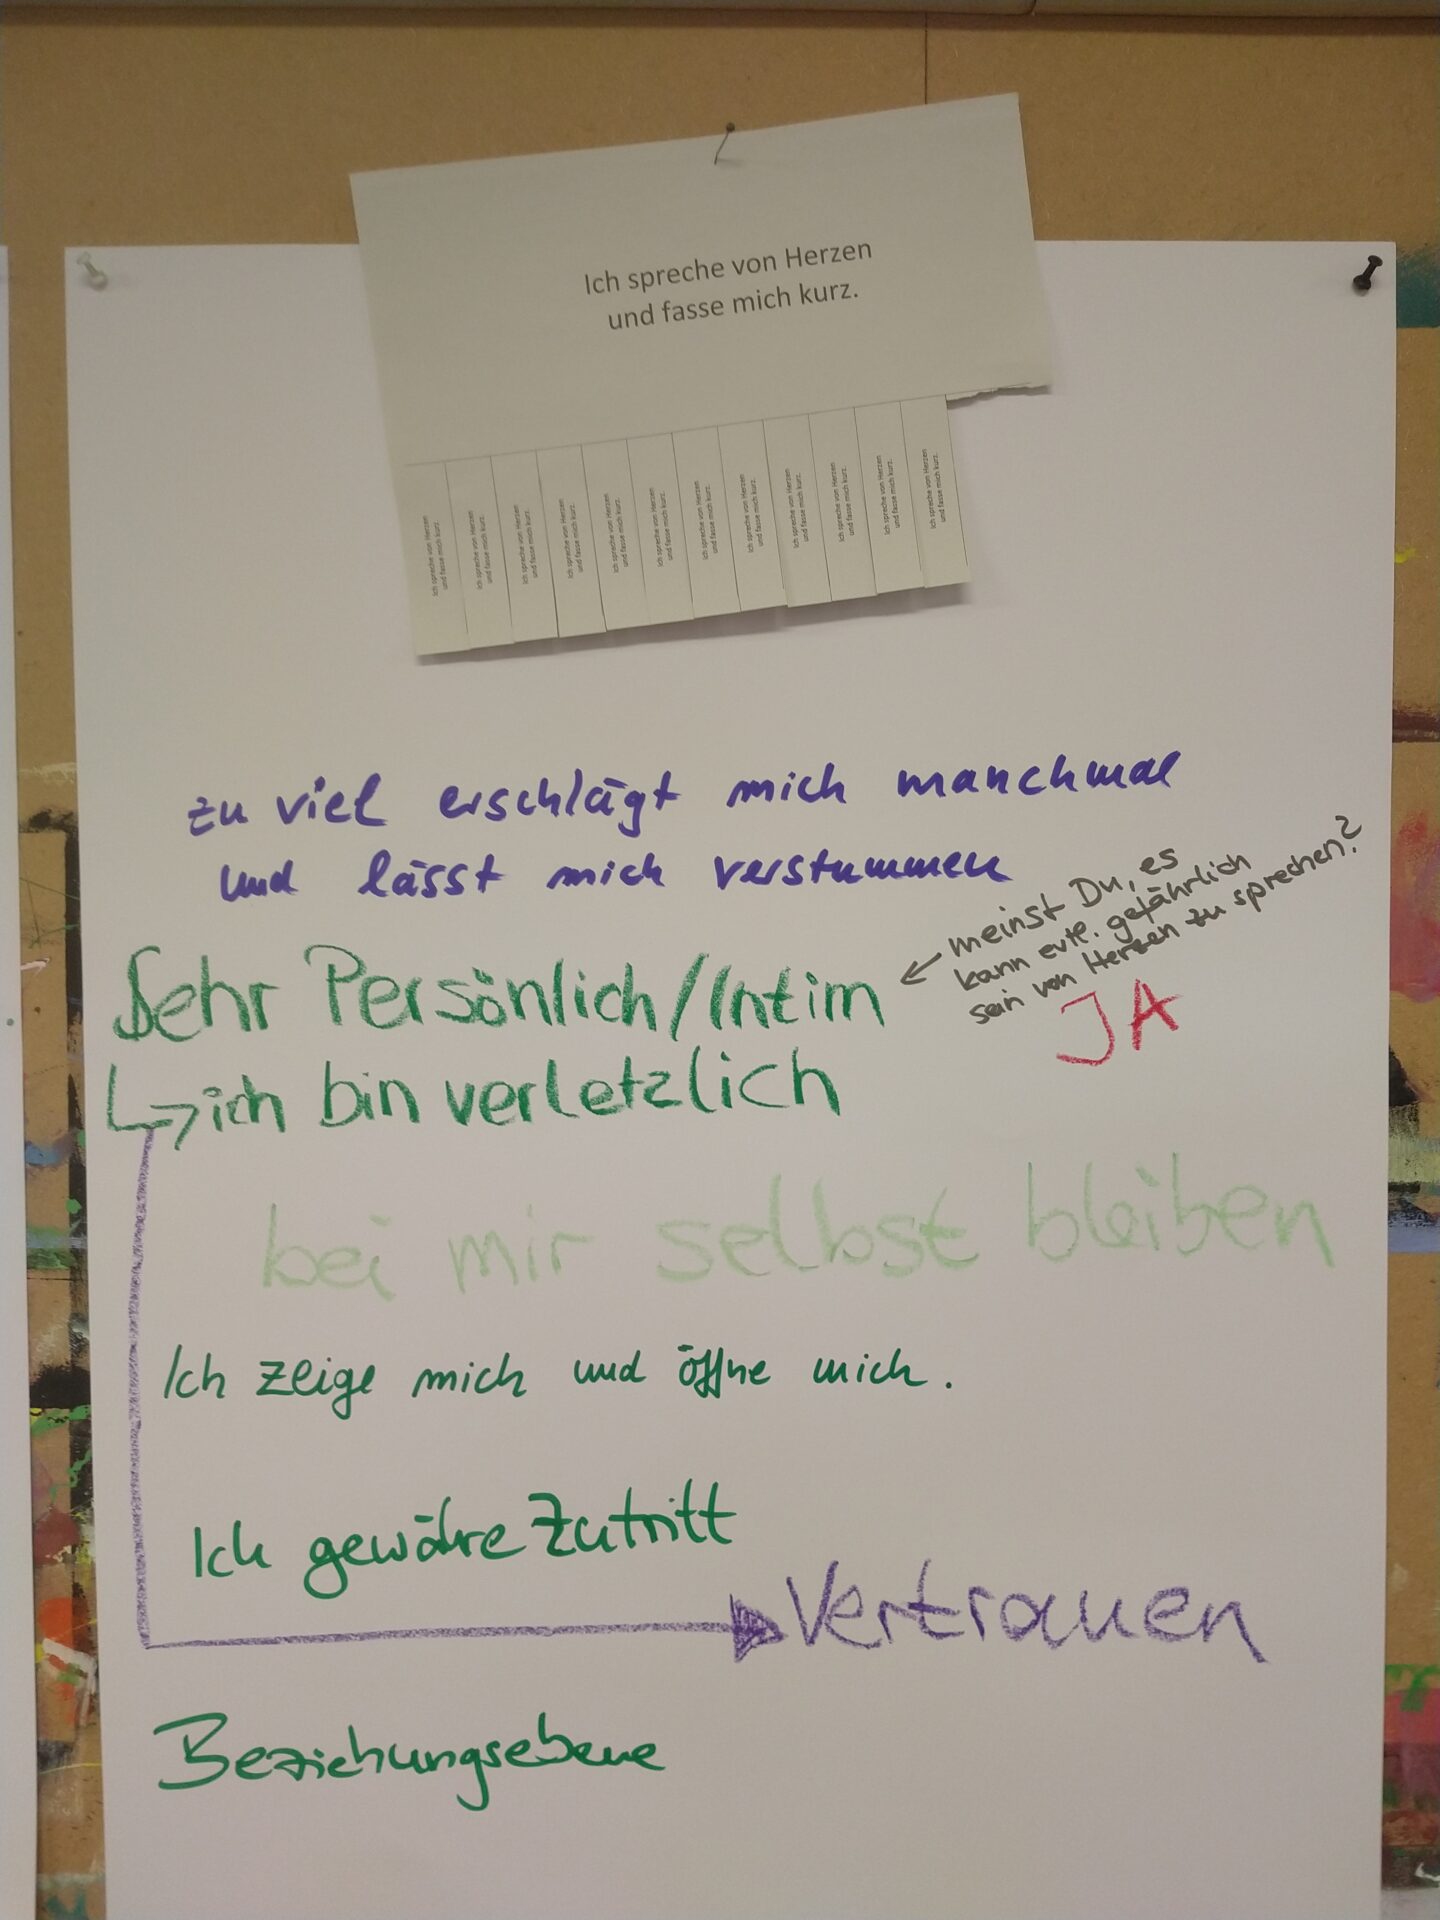 Ich spreche von Herzen
und fasse mich kurz.
Ich spreche von Herzen
und fasse mich kurz.
Ich spreche von Herzen
und fasse mich kurz.
Ich spreche von Herzen
und fasse mich kurz.
Ich spreche von Herzen
und fasse mich kurz.
Ich spreche von Herzen
und fasse mich kurz.
Ich spreche von Herzen
und fasse mich kurz.
Ich spreche von Herzen
und fasse mich kurz.
Ich spreche von Herzen
und fasse mich kurz.
Ich spreche von Herzen
und fasse mich kurz.
Ich spreche von Herzen
und fasse mich kurz.
Ich spreche von Herzen
und fasse mich kurz.
Ich spreche von Herzen
und fasse mich kurz.
zu viel erschlägt mich manchmal
und lässt mich verstummen
Sehr Persönlich/Intim
← meinst Du, es
kann evtl. gefährlich
sein von Herzen zu sprechen?
JA
↳ ich bin verletzlich
bei mir selbst bleiben
Ich zeige mich und öffne mich.
Ich gewähre Zutritt
Vertrauen
Beziehungsebene